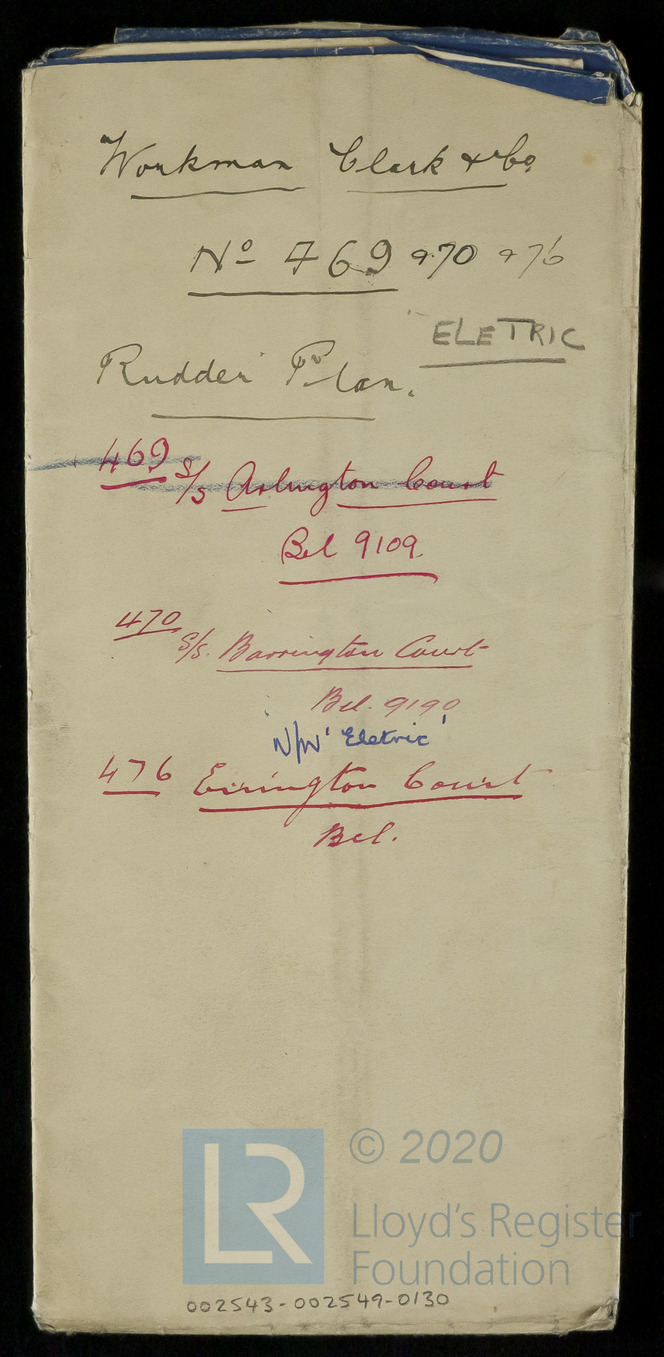 Workman Clark & Co
No 469 & 70 & 76
ELETRIC
Rudder Plan.
469 S/S Arlington Court
Bel 9109.
470 S/S. Barrington Court
Bel. 9190
N/N 'Eletric'
476 Errington Court
Bel.
© 2020
LR Lloyd's Register
Foundation
002543-002549-0130